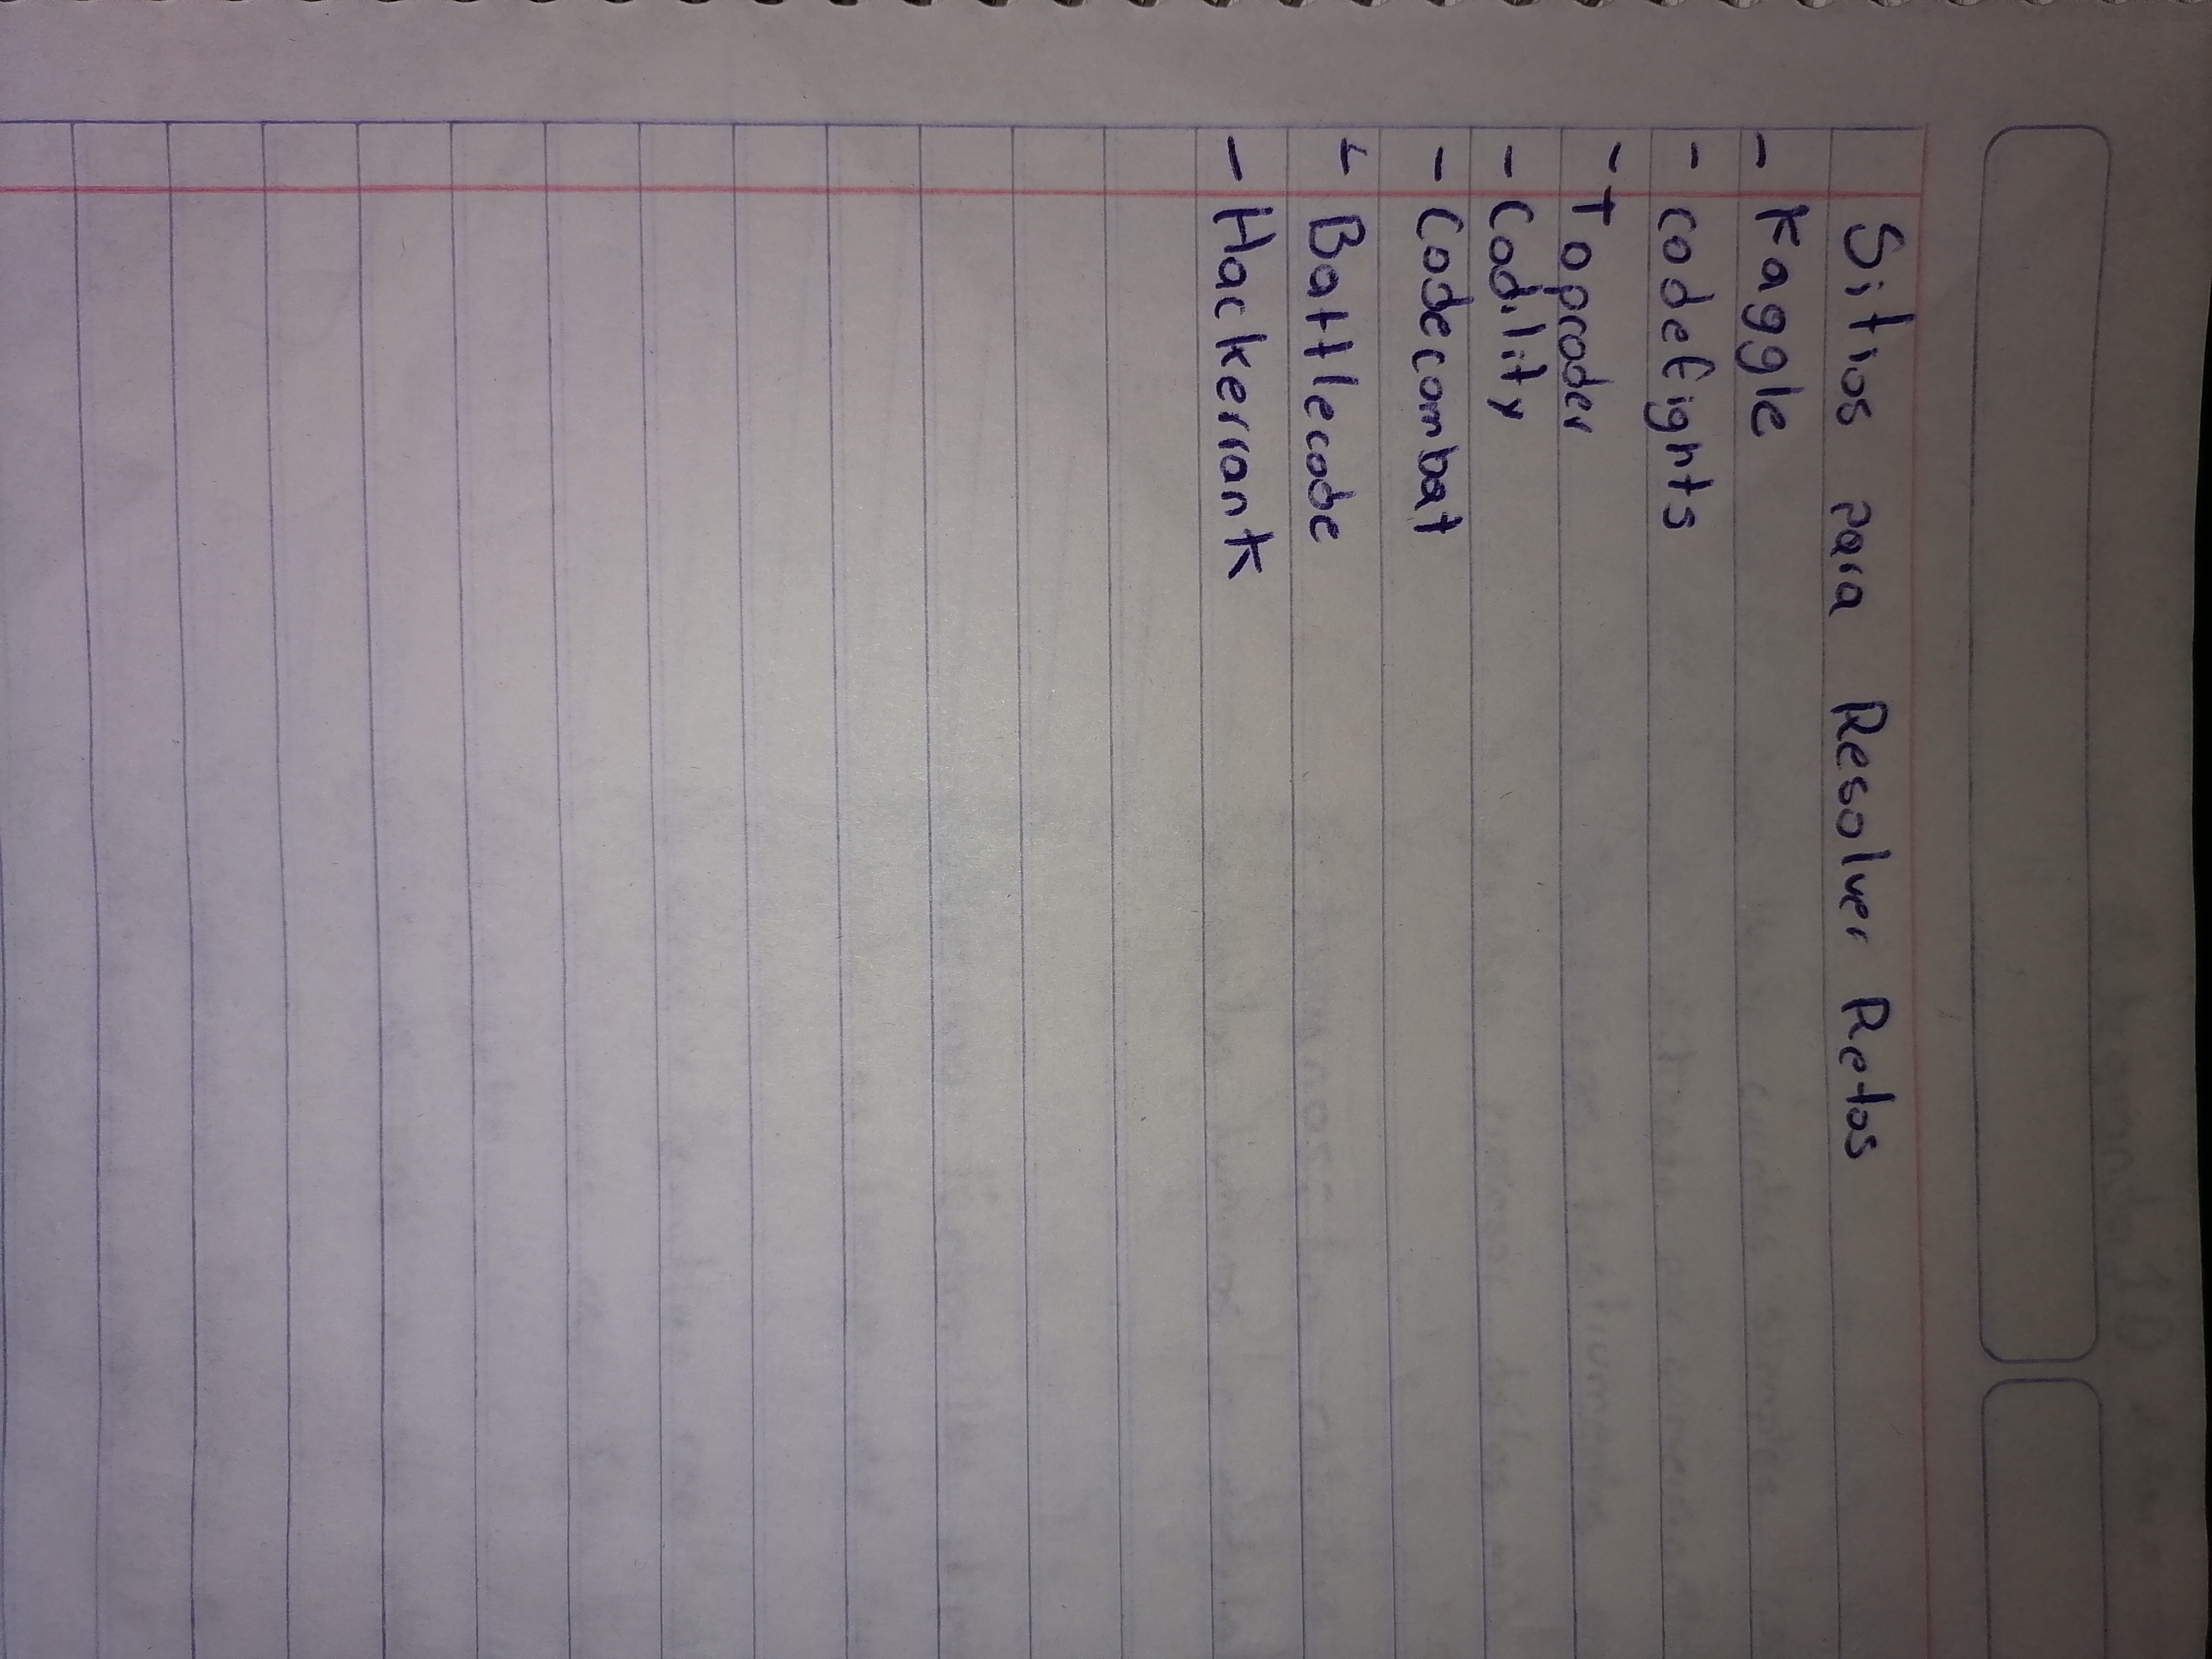 Sitios para Resolver Retos
- Kaggle
- codefights
- Topcoder
- Codility
- Codecombat
- Battlecode
- Hackerrank